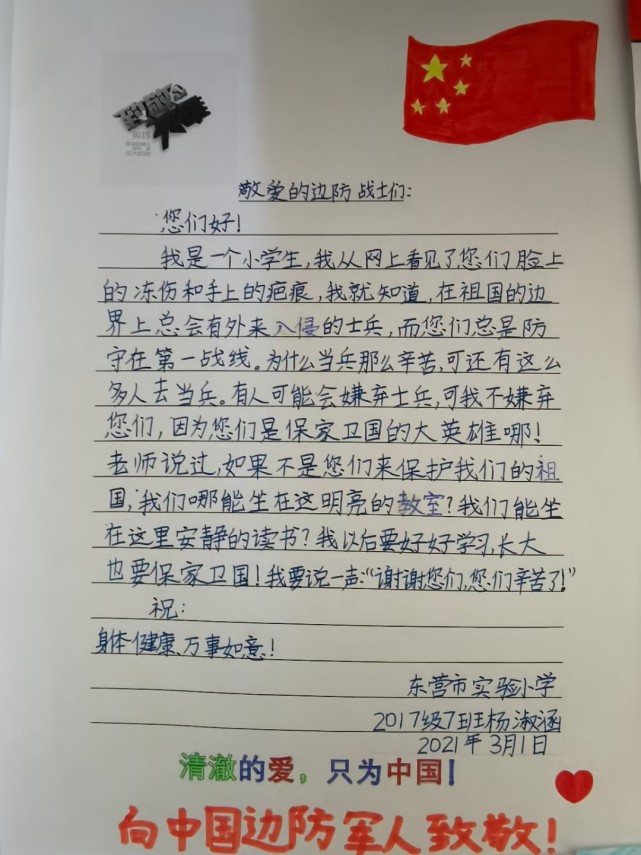 致敬
英雄
敬爱的边防战士们:
您们好!
我是一个小学生,我从网上看见了您们脸上
的冻伤和手上的疤痕,我就知道,在祖国的边
界上总会有外来入侵的士兵,而您们总是防
守在第一战线。为什么当兵那么辛苦,可还有这么
多人去当兵。有人可能会嫌弃士兵,可我不嫌弃
您们,因为您们是保家卫国的大英雄哪!
老师说过,如果不是您们来保护我们的祖
国,我们哪能坐在这明亮的教室?我们能坐
在这里安静的读书?我以后要好好学习,长大
也要保家卫国!我要说一声:“谢谢您们,您们辛苦了!”
祝:
身体健康、万事如意!
东营市实验小学
2017级7班杨淑涵
2021年3月1日
清澈的爱,只为中国!
向中国边防军人致敬!